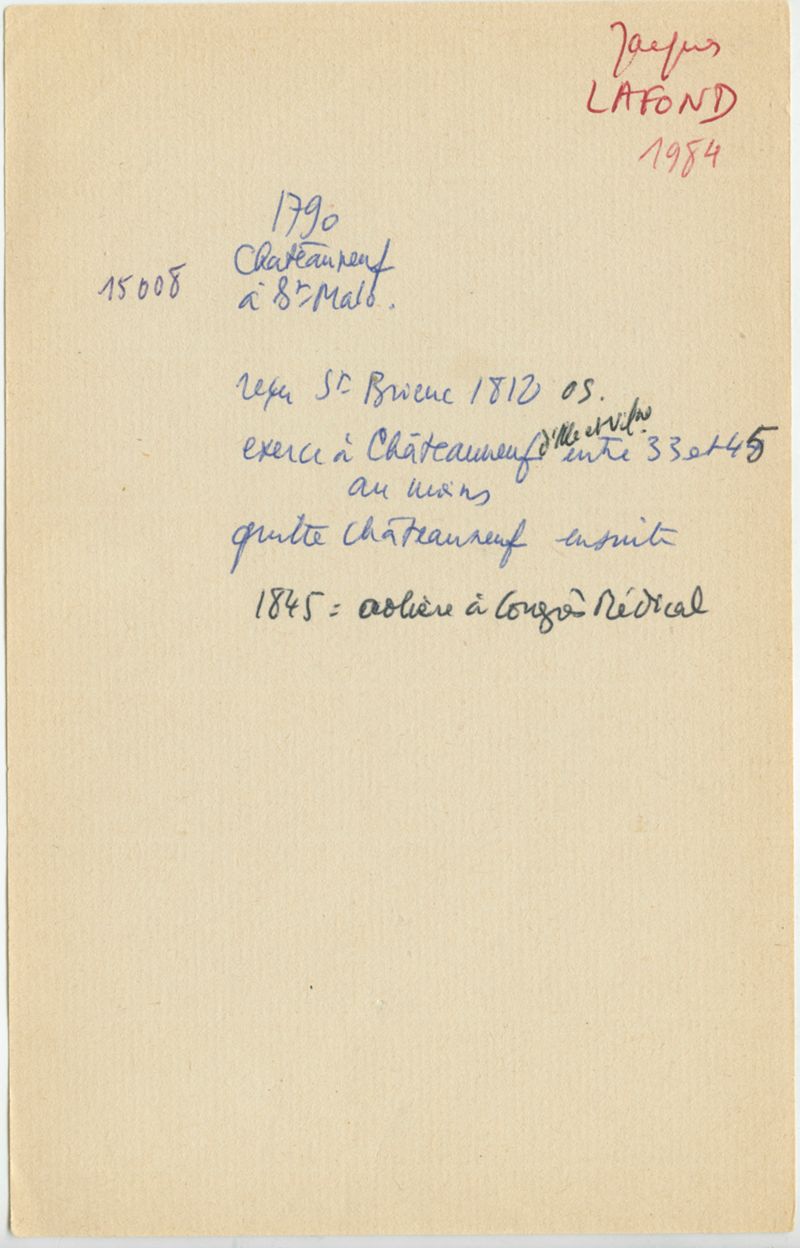 Jacques
LAFOND
1984
1790
Chateauneuf
15008
à St Malo.
reçu St Brieuc 1812 OS.
exerce à Châteauneuf d'Ille et Vilne entre 33 et 45
au moins
quitte Châteauneuf ensuite
1845 = adhère à Congrès Médical